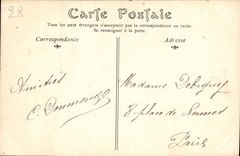 28
Carte Postale
Tous les pays étrangers n'acceptent pas la correspondance au recto.
Se renseigner à la poste.
Correspondance
Adresse
Amitiés
Madame
8 place de Rennes
Paris